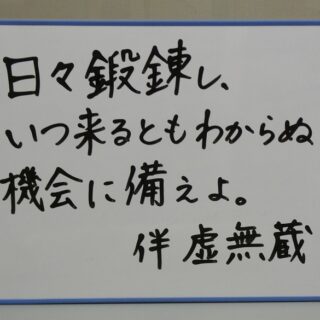 日々鍛錬し、
いつ来るともわからぬ
機会に備えよ。
伴虚無蔵